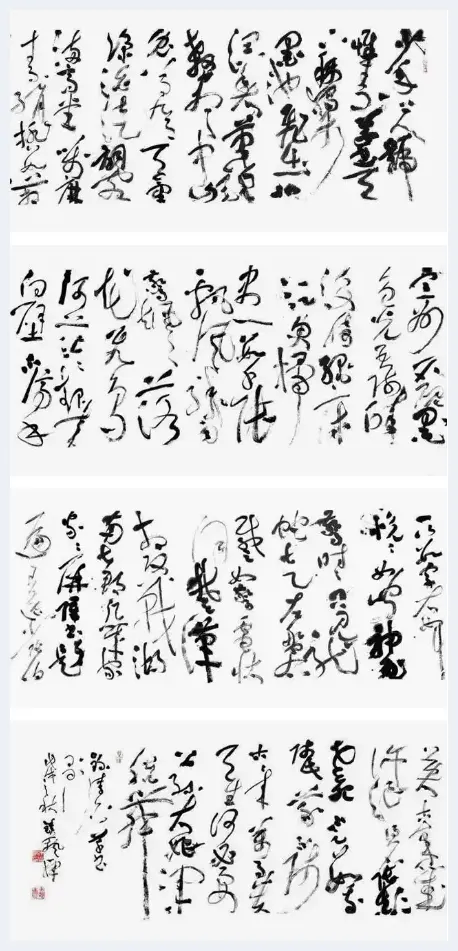 少年上人號
懷素草書天
下稱獨步
墨池飛出北
溟魚筆鋒
殺盡中山
兔八月九月天氣
涼酒徒詞客
滿高堂箋麻
素絹排數箱
宣州石硯墨
色光吾師醉
後倚繩床
須臾掃
盡數千張
飄風驟雨
驚颯颯落
花飛雪
何茫茫起來
向壁不停手
一行數字大如斗
怳怳如聞神鬼
驚時時只見龍
蛇走左盤右
蹙如驚電狀
同楚漢
相攻戰湖
南七郡凡幾家
家家屏障書題
遍王逸少張伯
英古來幾
許浪得名張顛
老死不足數
我師此義不
師古古來
萬事貴
天生何必要
公孫大娘渾
脫舞